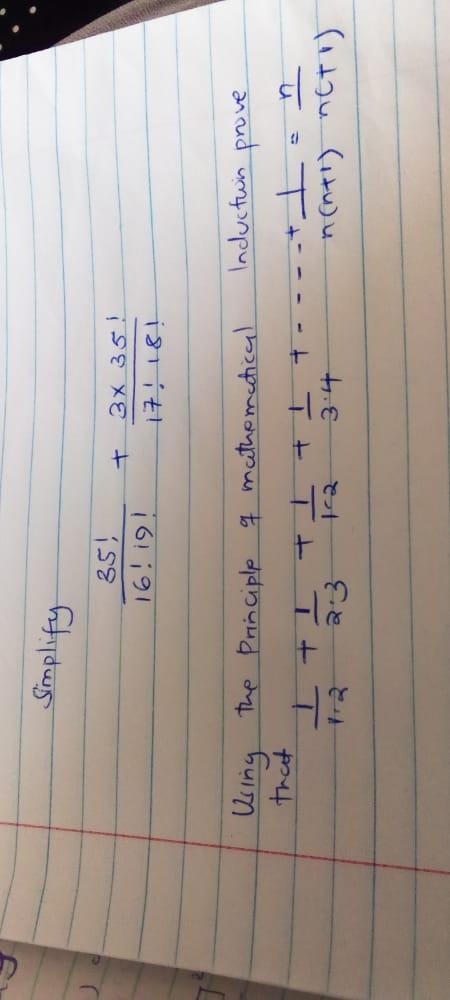 Simplify
35! / 16! 19! + 3 x 35! / 17! 18!
Using the Principle of mathematical Induction prove
that
1/1·2 + 1/2·3 + 1/1·2 + 1/3·4 + - - - - + 1/n(n+1) = n/n(+1)